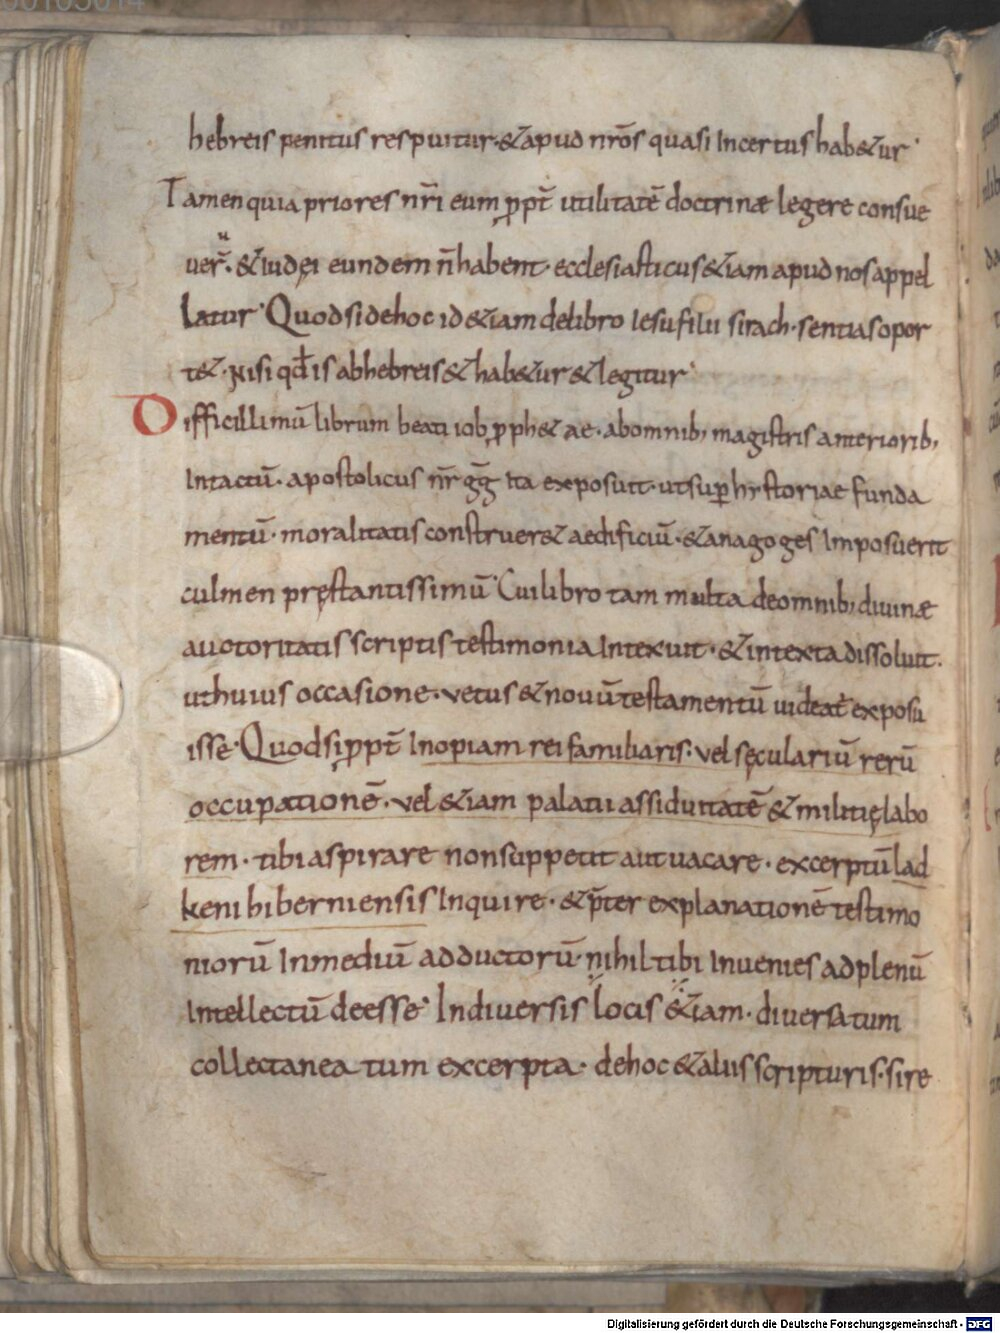 hebreis penitus respuitur · & apud nr̄os quasi Incertus hab&ur ·
Tamen quia priores nr̄i eum ꝓpt̄ utilitatē doctrinæ legere consue
uer̄ · & iudęi eundem n̄ habent · ecclesiasticus &iam apud nos appel
latur · Quod si de hoc id &iam de libro Iesu filii sirach · sentias opor
t& · Nisi qđ is ab hebreis & hab&ur & legitur ·
Difficillimū librum beati iob ꝓph&ae · ab omnib; magistris anteriorib;
Intactū · apostolicus nr̄ gḡ Ita exposuit · ut suꝑ hystoriae funda
mentū · moralitatis construer& aedificiū · & anagoges Imposuerit
culmen pręstantissimū · Cui libro tam multa de omnib; diuinæ
auctoritatis scriptis testimonia Intexuit · & intexta dissoluit ·
ut huius occasione · vetus & nouū testamentū uideat̄ exposu
issē · Quod si ꝓpt̄ Inopiam rei familiaris · vel sęculariū rerū
occupationē · vel &iam palatii assiduitatē & militię labo
rem · tibi aspirare non suppetit aut uacare · excerptū lad
keni hiberniensis Inquire · & p̄ter explanationē testimo
niorū In mediū adductorū · nihil tibi Inuenies ad plenū
Intellectū deesse · In diuersis locis &iam · diuersa tum
collectanea tum excerpta · de hoc & aliis scripturis · si re
Digitalisierung gefördert durch die Deutsche Forschungsgemeinschaft - DFG